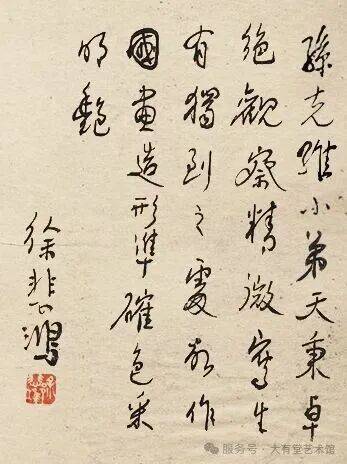 孫克維小弟天秉卓
絕觀察精微寫生
有獨到之處故作
國畫造形準確色采
明艷
徐悲鴻
服务号 · 大有堂艺术馆